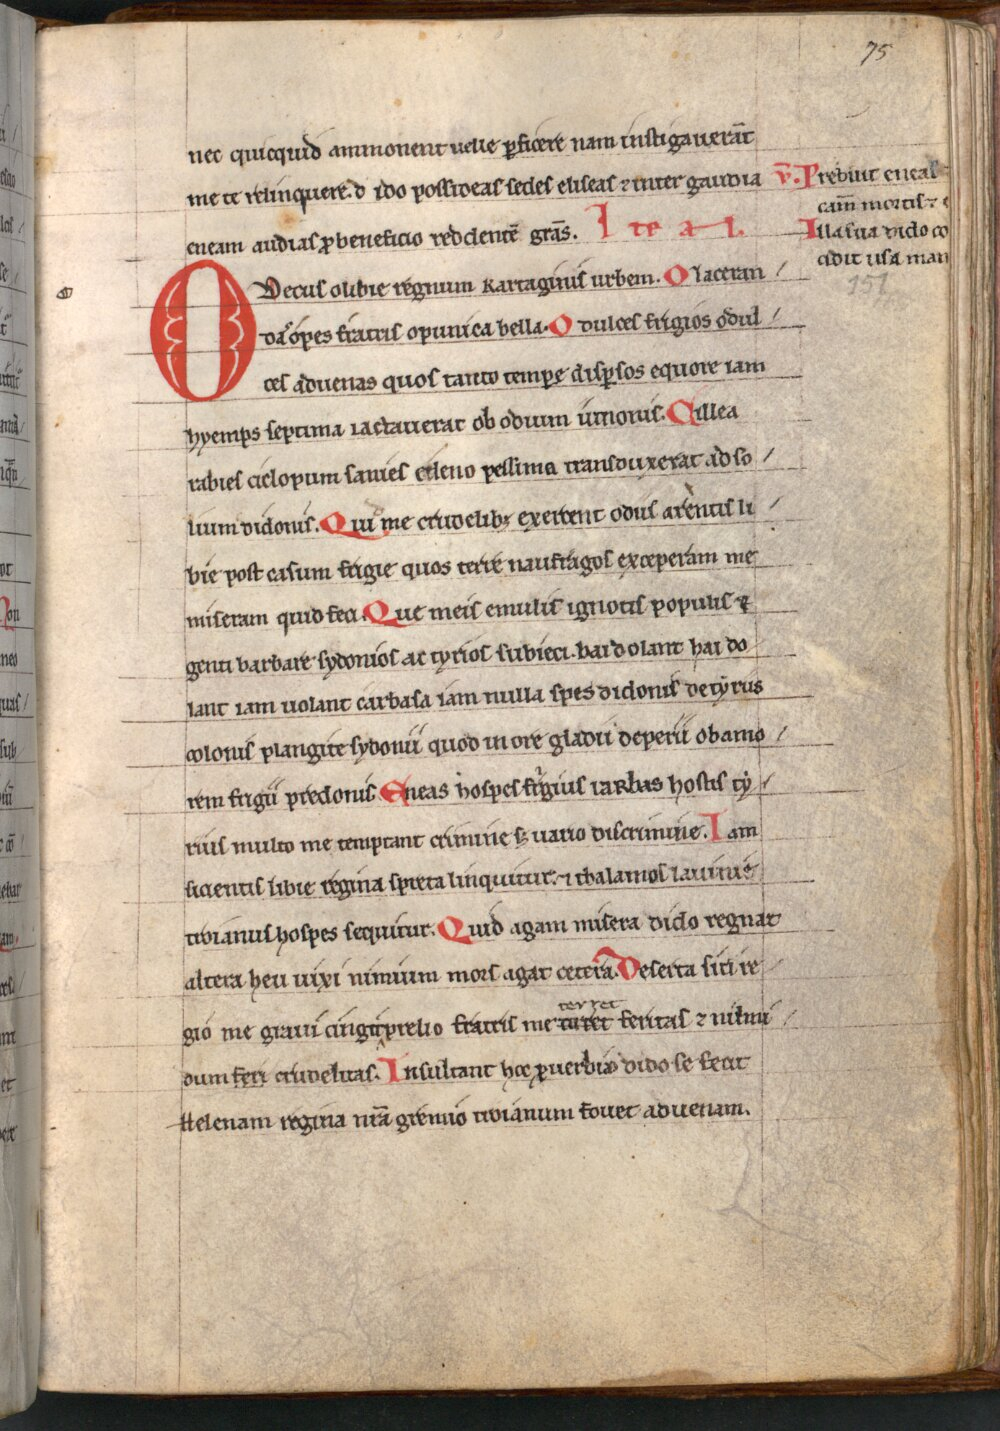 75
nec quicquid ammonent uelle ꝑficere nam instigauerāt
me te relinquere. d ido possideas sedes eliseas ⁊ inter gaudia
eneam audias ꝓ beneficio reddentē grās. Ite al.
v̄. Prebuit eneas
cam̄ mortis ⁊ e
Illa sua dido co
cidit usa man
151
O Decus o libie regnum kartaginis urbem. O laceran
das opes fratris o punica bella. O dulces frigios o dul
ces aduenas quos tanto tempe disꝑsos equore iam
hyemps septima iactauerat ob odium iunonis. Scillea
rabies ciclopum sanies celeno pessima transduxerat ad so
lium didonis. Qui me crudelibꝫ exercent odiis arentis li
bie post casum frigie quos terre naufragos exceperam me
miseram quid feci. Que meis emulis ignotis populis ⁊
genti barbare sydonios ac tyrios subieci. hai dolant hai do
lant iam uolant carbasa iam nulla spes didonis de tyrus
colonis plangite sydonii quod in ore gladii deperii ob amo
rem frigii predonis. Eneas hospes frigius iarbas hostis ty
rius multo me temptant crimine sꝫ uario discrimine. Iam
sicientis libie regina spreta linquitur. ⁊ thalamos lauinie
troianus hospes sequitur. Quid agam misera dido regnat
altera heu uixi nimium mors agat cetera. Deserta siti re
gio me graui cingit prelio fratris me terret feritas ⁊ numi
dum feri crudelitas. Insultant hoc ꝓuerbio dido se fecit
Helenam regina nrā gremio troianum fouet aduenam.